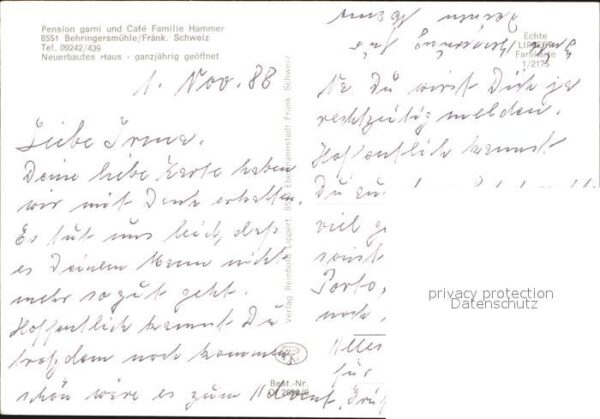 Pension garni und Café Familie Hammer
8551 Behringersmühle/Fränk. Schweiz
Tel. 09242/439
Neuerbautes Haus - ganzjährig geöffnet
1. Nov. 88
Liebe Irma.
Deine liebe Karte haben
wir mit Dank erhalten.
Es tut uns leid, daß
es Deinem Mann nicht
mehr so gut geht.
Hoffentlich kannst Du
trotzdem noch kommen,
schön wäre es zum Advent,
Verlag Reinhold Lippert 8553 Ebermannstadt Fränk. Schweiz
Best.-Nr.
Echte
LIPPERT
Farbkarte
1/2175
Na Du wirst Dich ja
rechtzeitig melden.
Hoffentlich kannst
Du
viel
sonst
Porto,
noch
Alles
für
privacy protection
Datenschutz